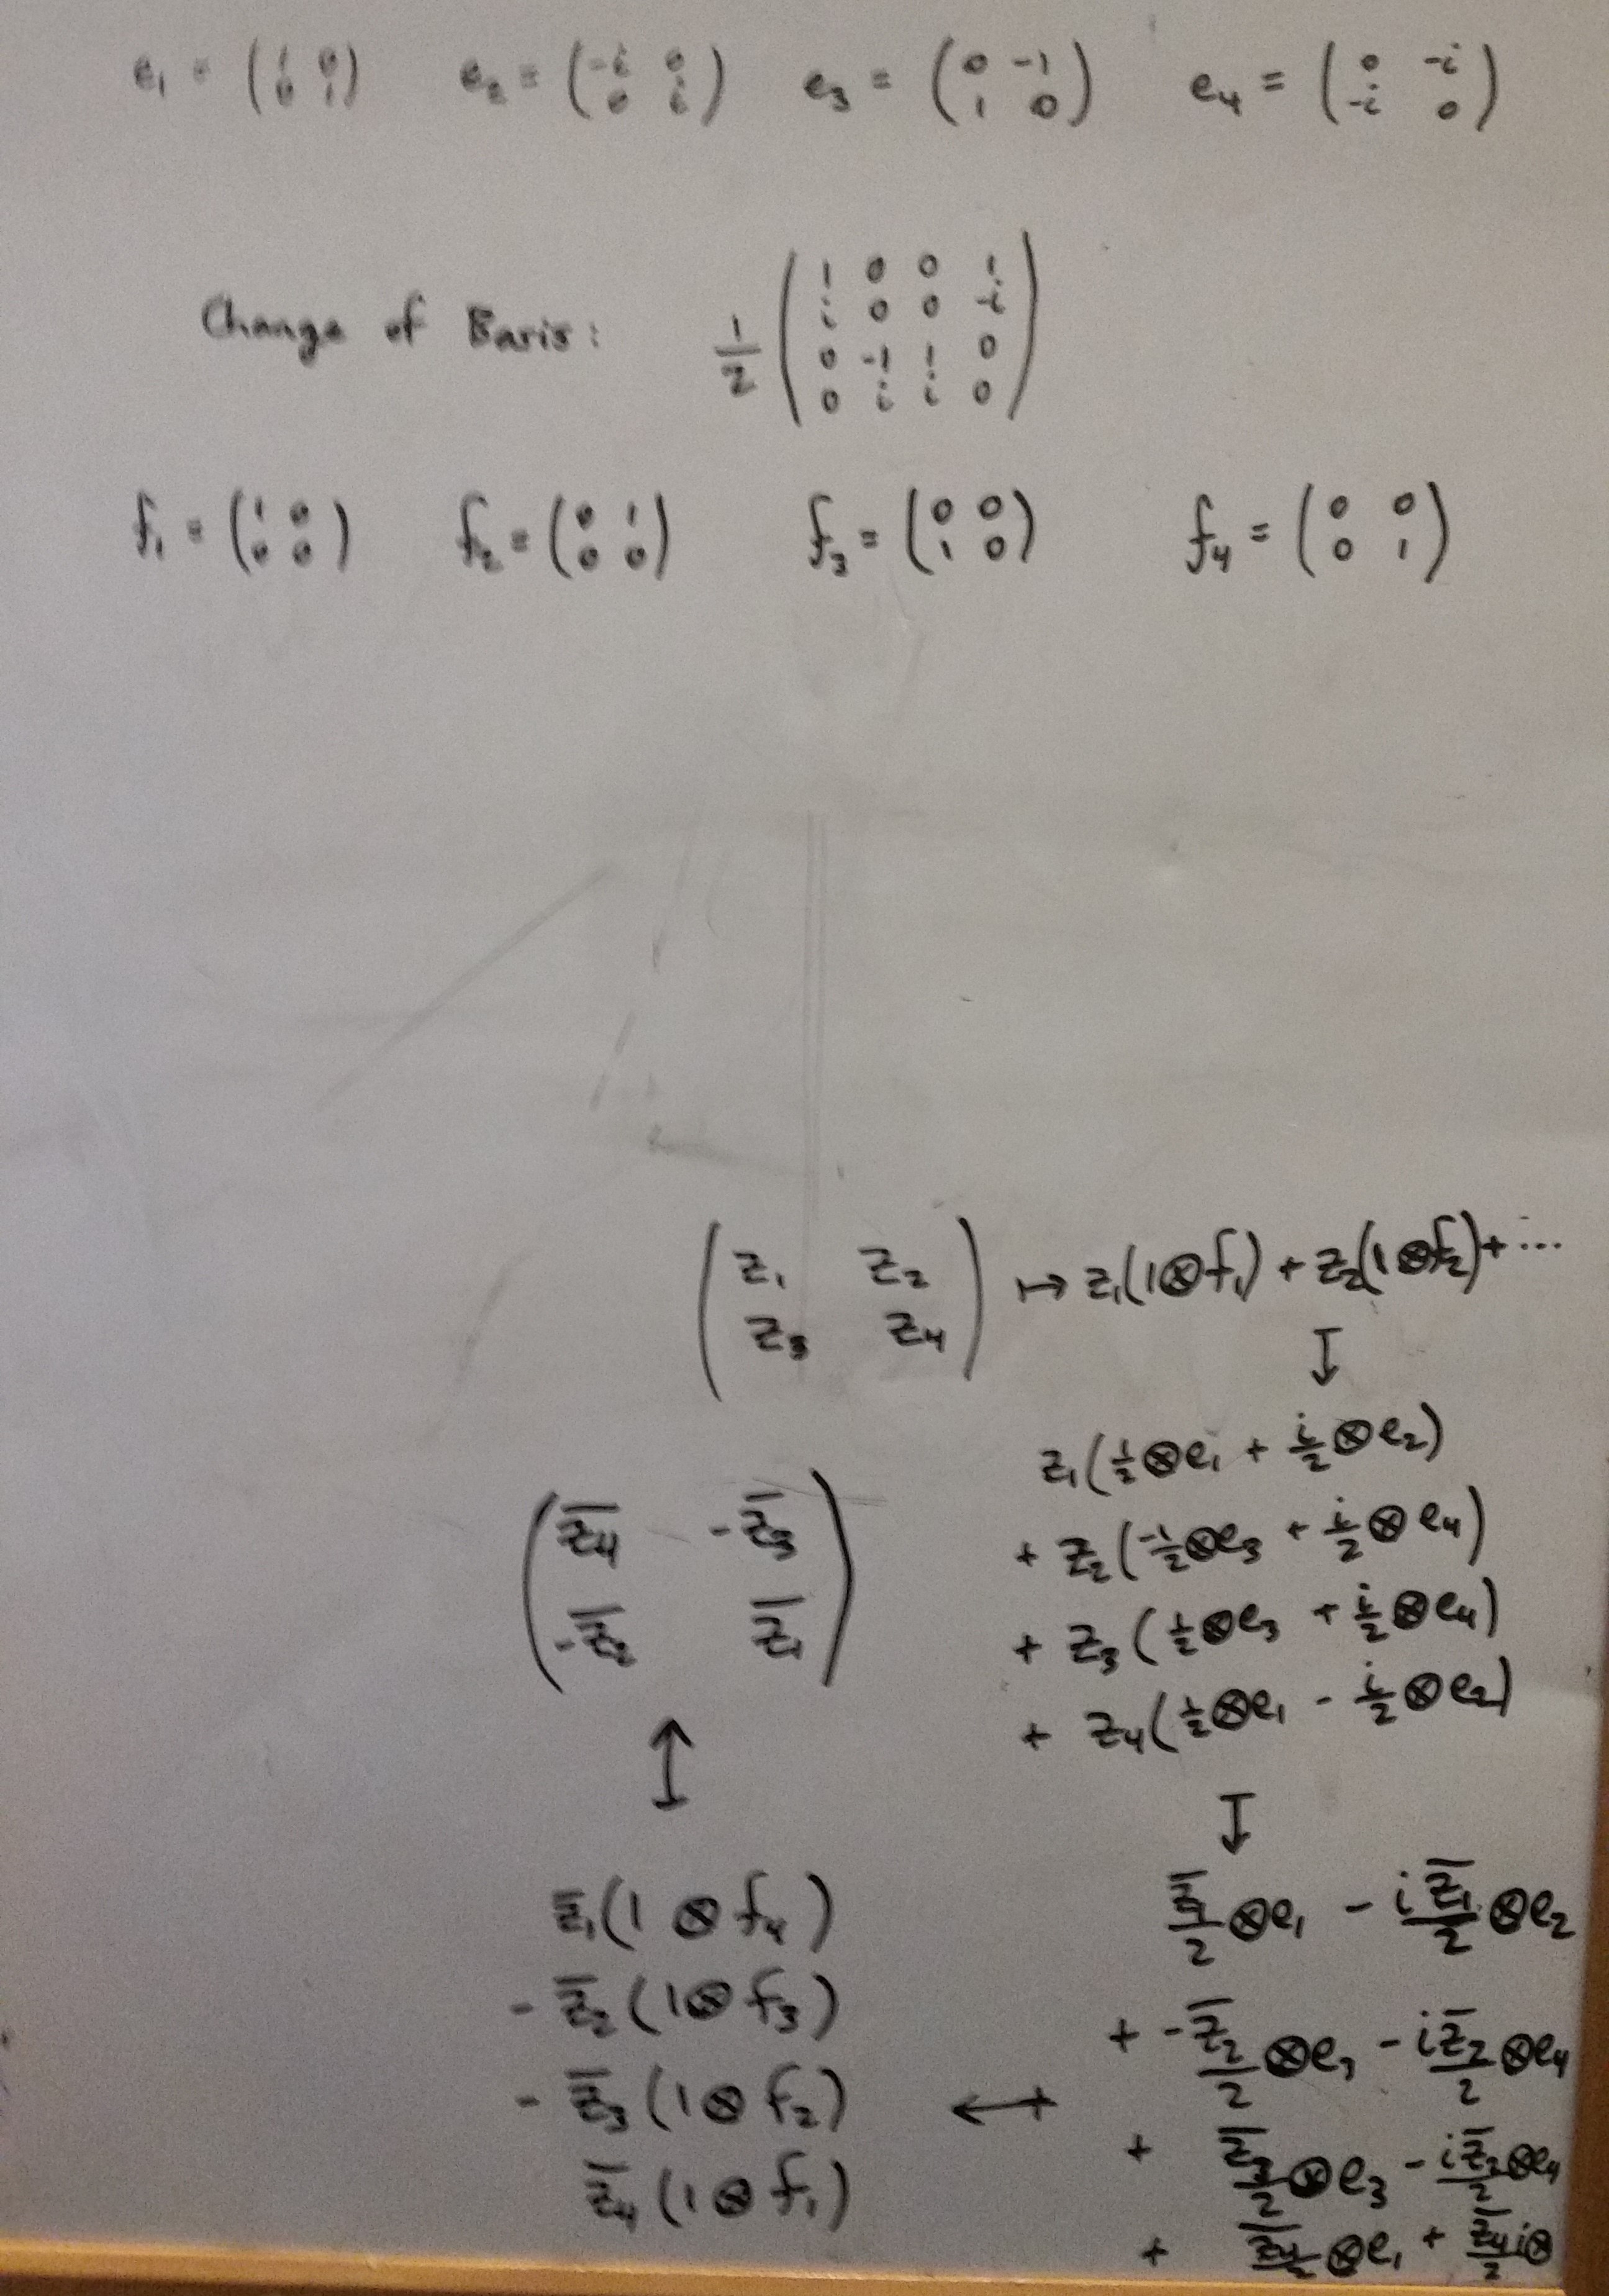 e₁ = (1 0; 0 1) e₂ = (-i 0; 0 i) e₃ = (0 -1; 1 0) e₄ = (0 -i; -i 0)
Change of Basis: 1/2 (1 0 0 1; i 0 0 -i; 0 -1 1 0; 0 i i 0)
f₁ = (1 0; 0 0) f₂ = (0 1; 0 0) f₃ = (0 0; 1 0) f₄ = (0 0; 0 1)
(z₁ z₂; z₃ z₄) ↦ z₁(1⊗f₁) + z₂(1⊗f₂) + ...
↧
z₁(1/2⊗e₁ + i/2⊗e₂)
+ z₂(-1/2⊗e₃ + i/2⊗e₄)
+ z₃(1/2⊗e₃ + i/2⊗e₄)
+ z₄(1/2⊗e₁ - i/2⊗e₂)
↧
z̄₁/2⊗e₁ - i z̄₁/2⊗e₂
+ -z̄₂/2⊗e₃ - i z̄₂/2⊗e₄
+ z̄₃/2⊗e₃ - i z̄₃/2⊗e₄
+ z̄₄/2⊗e₁ + z̄₄/2 i⊗
↤
z̄₁(1⊗f₄)
- z̄₂(1⊗f₃)
- z̄₃(1⊗f₂)
z̄₄(1⊗f₁)
↥
(z̄₄ -z̄₃; -z̄₂ z̄₁)